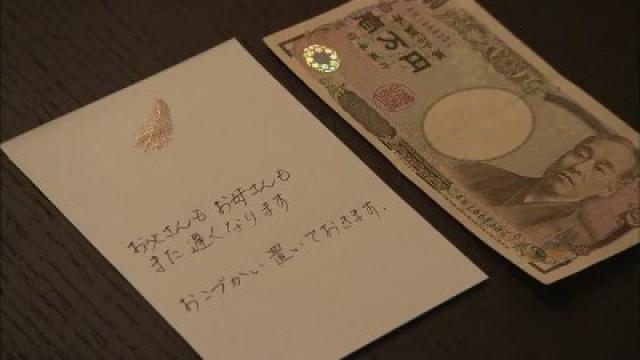 お父さんも お母さんも
また遅くなります
おこづかい 置いておきます.
日本銀行券
壱万円
日本銀行